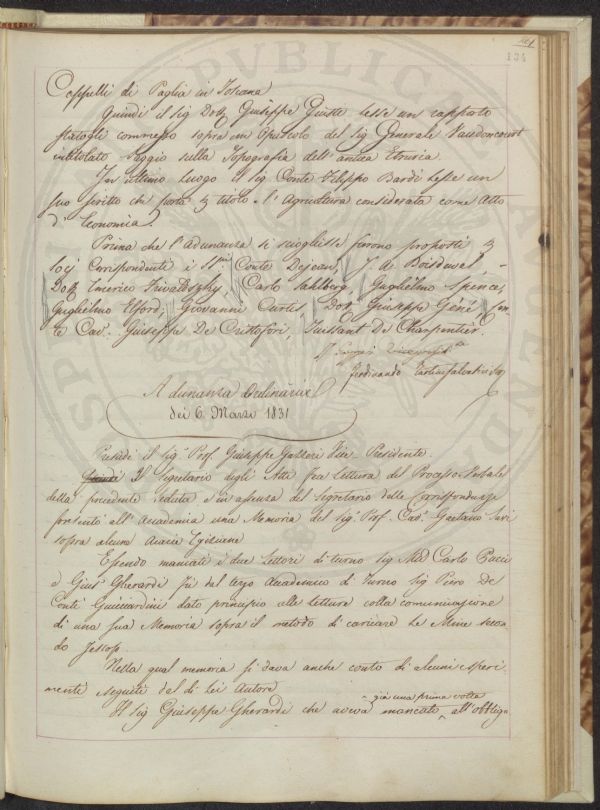 134
Cappelli di Paglia in Toscana
Quindi il Sig Dott Giuseppe Giusti lesse un rapporto
statogli commesso sopra un Opuscolo del Sig Generale Vaudoncourt
intitolato Saggio sulla Topografia dell'antica Etruria.
In ultimo luogo il Sig Conte Filippo Bardi lesse un
suo scritto che porta per titolo - l'Agricoltura considerata come Atto
d'Economia.
Prima che l'Adunanza si sciogliesse furono proposti per
Socj Corrispondenti i SSri Conte Dejean, J. A. Boisduval,
Dott Emerico Frivaldszky, Carlo Sahlberg, Guglielmo Spence,
Guglielmo Elford, Giovanni Curtis, Dott Giuseppe Géné, Con
te Cav. Giuseppe De Cristofori, Tussant de Charpentier.
Ferdinando Tartini Salvatici
Adunanza Ordinaria
dei 6. Marzo 1831
Presiede il Sig. Prof. Giuseppe Gazzeri Vice Presidente.
Quindi Il Segretario degli Atti fece lettura del Processo Verbale
della precedente Seduta e in assenza del Segretario delle Corrispondenze
presentò all'Accademia una Memoria del Sig. Prof. Cav. Gaetano Savi
sopra alcune Acacie Egiziane
Essendo mancati i due Lettori di turno Sig Carlo Pucci
e Gius. Gherardi fu dal terzo Accademico di Turno Sig Piero De
Conti Guicciardini dato principio alle letture colla comunicazione
di una sua Memoria sopra il metodo di caricare le Mine secon
do Jessop.
Nella qual memoria si dava anche conto di alcuni speri
menti eseguiti dal di lei Autore
già una prima volta
Il Sig Giuseppe Gherardi che aveva mancato all'obbligo